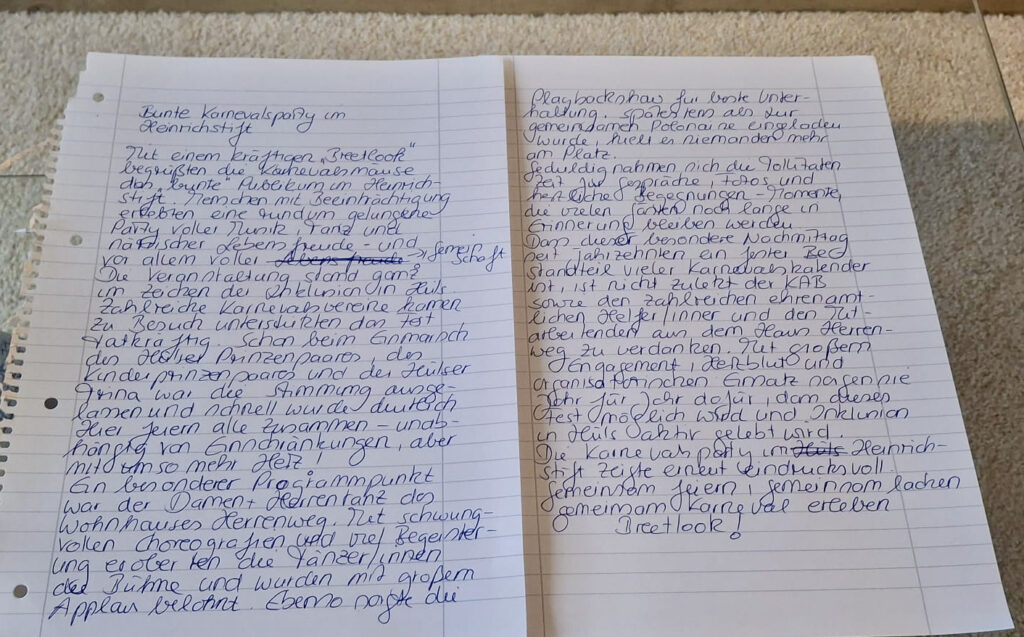 Bunte Karnevalsparty im
Heinrichstift
Mit einem kräftigen „Breetlook"
begrüßten die Karnevalsmäuse
das „bunte" Publikum im Heinrich-
stift. Menschen mit Beeinträchtigung
erlebten eine rundum gelungene
Party voller Musik, Tanz und
närrischer Lebensfreude - und
vor allem voller Gemeinschaft
Die Veranstaltung stand ganz
im Zeichen der Inklusion in Hüls.
Zahlreiche Karnevalsvereine kamen
zu Besuch unterstützten das Fest
tatkräftig. Schon beim Einmarsch
des Hülser Prinzenpaares, des
Kinderprinzenpaares und der Hülser
war die Stimmung ausge-
lassen und schnell wurde deutlich
Hier feiern alle zusammen - unab-
hängig von Einschränkungen, aber
mit um so mehr Herz!
Ein besonderer Programmpunkt
war der Damen + Herrentanz des
Wohnhauses Herrenweg. Mit schwung-
vollen Choreografien und viel Begeister-
ung eroberten die Tänzer/innen
die Bühne und wurden mit großem
Applaus belohnt. Ebenso sorgte die
Playbackshow für beste Unter-
haltung. Spätestens als zur
gemeinsamen Polonaise eingeladen
wurde, hielt es niemanden mehr
am Platz.
Geduldig nahmen sich die Tollitäten
Zeit für Gespräche, Fotos und
herzliche Begegnungen - Momente,
die vielen Gästen noch lange in
Erinnerung bleiben werden
Dass dieser besondere Nachmittag
seit Jahrzehnten ein fester Be
standteil vieler Karnevalskalender
ist, ist nicht zuletzt der KAB
sowie den zahlreichen ehrenamt-
lichen Helfer/inner und den Mit-
arbeitenden aus dem Haus Herren-
weg zu verdanken. Mit großem
Engagement, Herzblut und
organisatorischen Einsatz sorgen sie
Jahr für Jahr dafür, dass dieses
Fest möglich wird und Inklusion
in Hüls aktiv gelebt wird.
Die Karnevalsparty im Heinrich-
stift zeigte erneut eindrucksvoll
gemeinsam feiern, gemeinsam lachen
gemeinsam Karneval erleben
Breetlook!